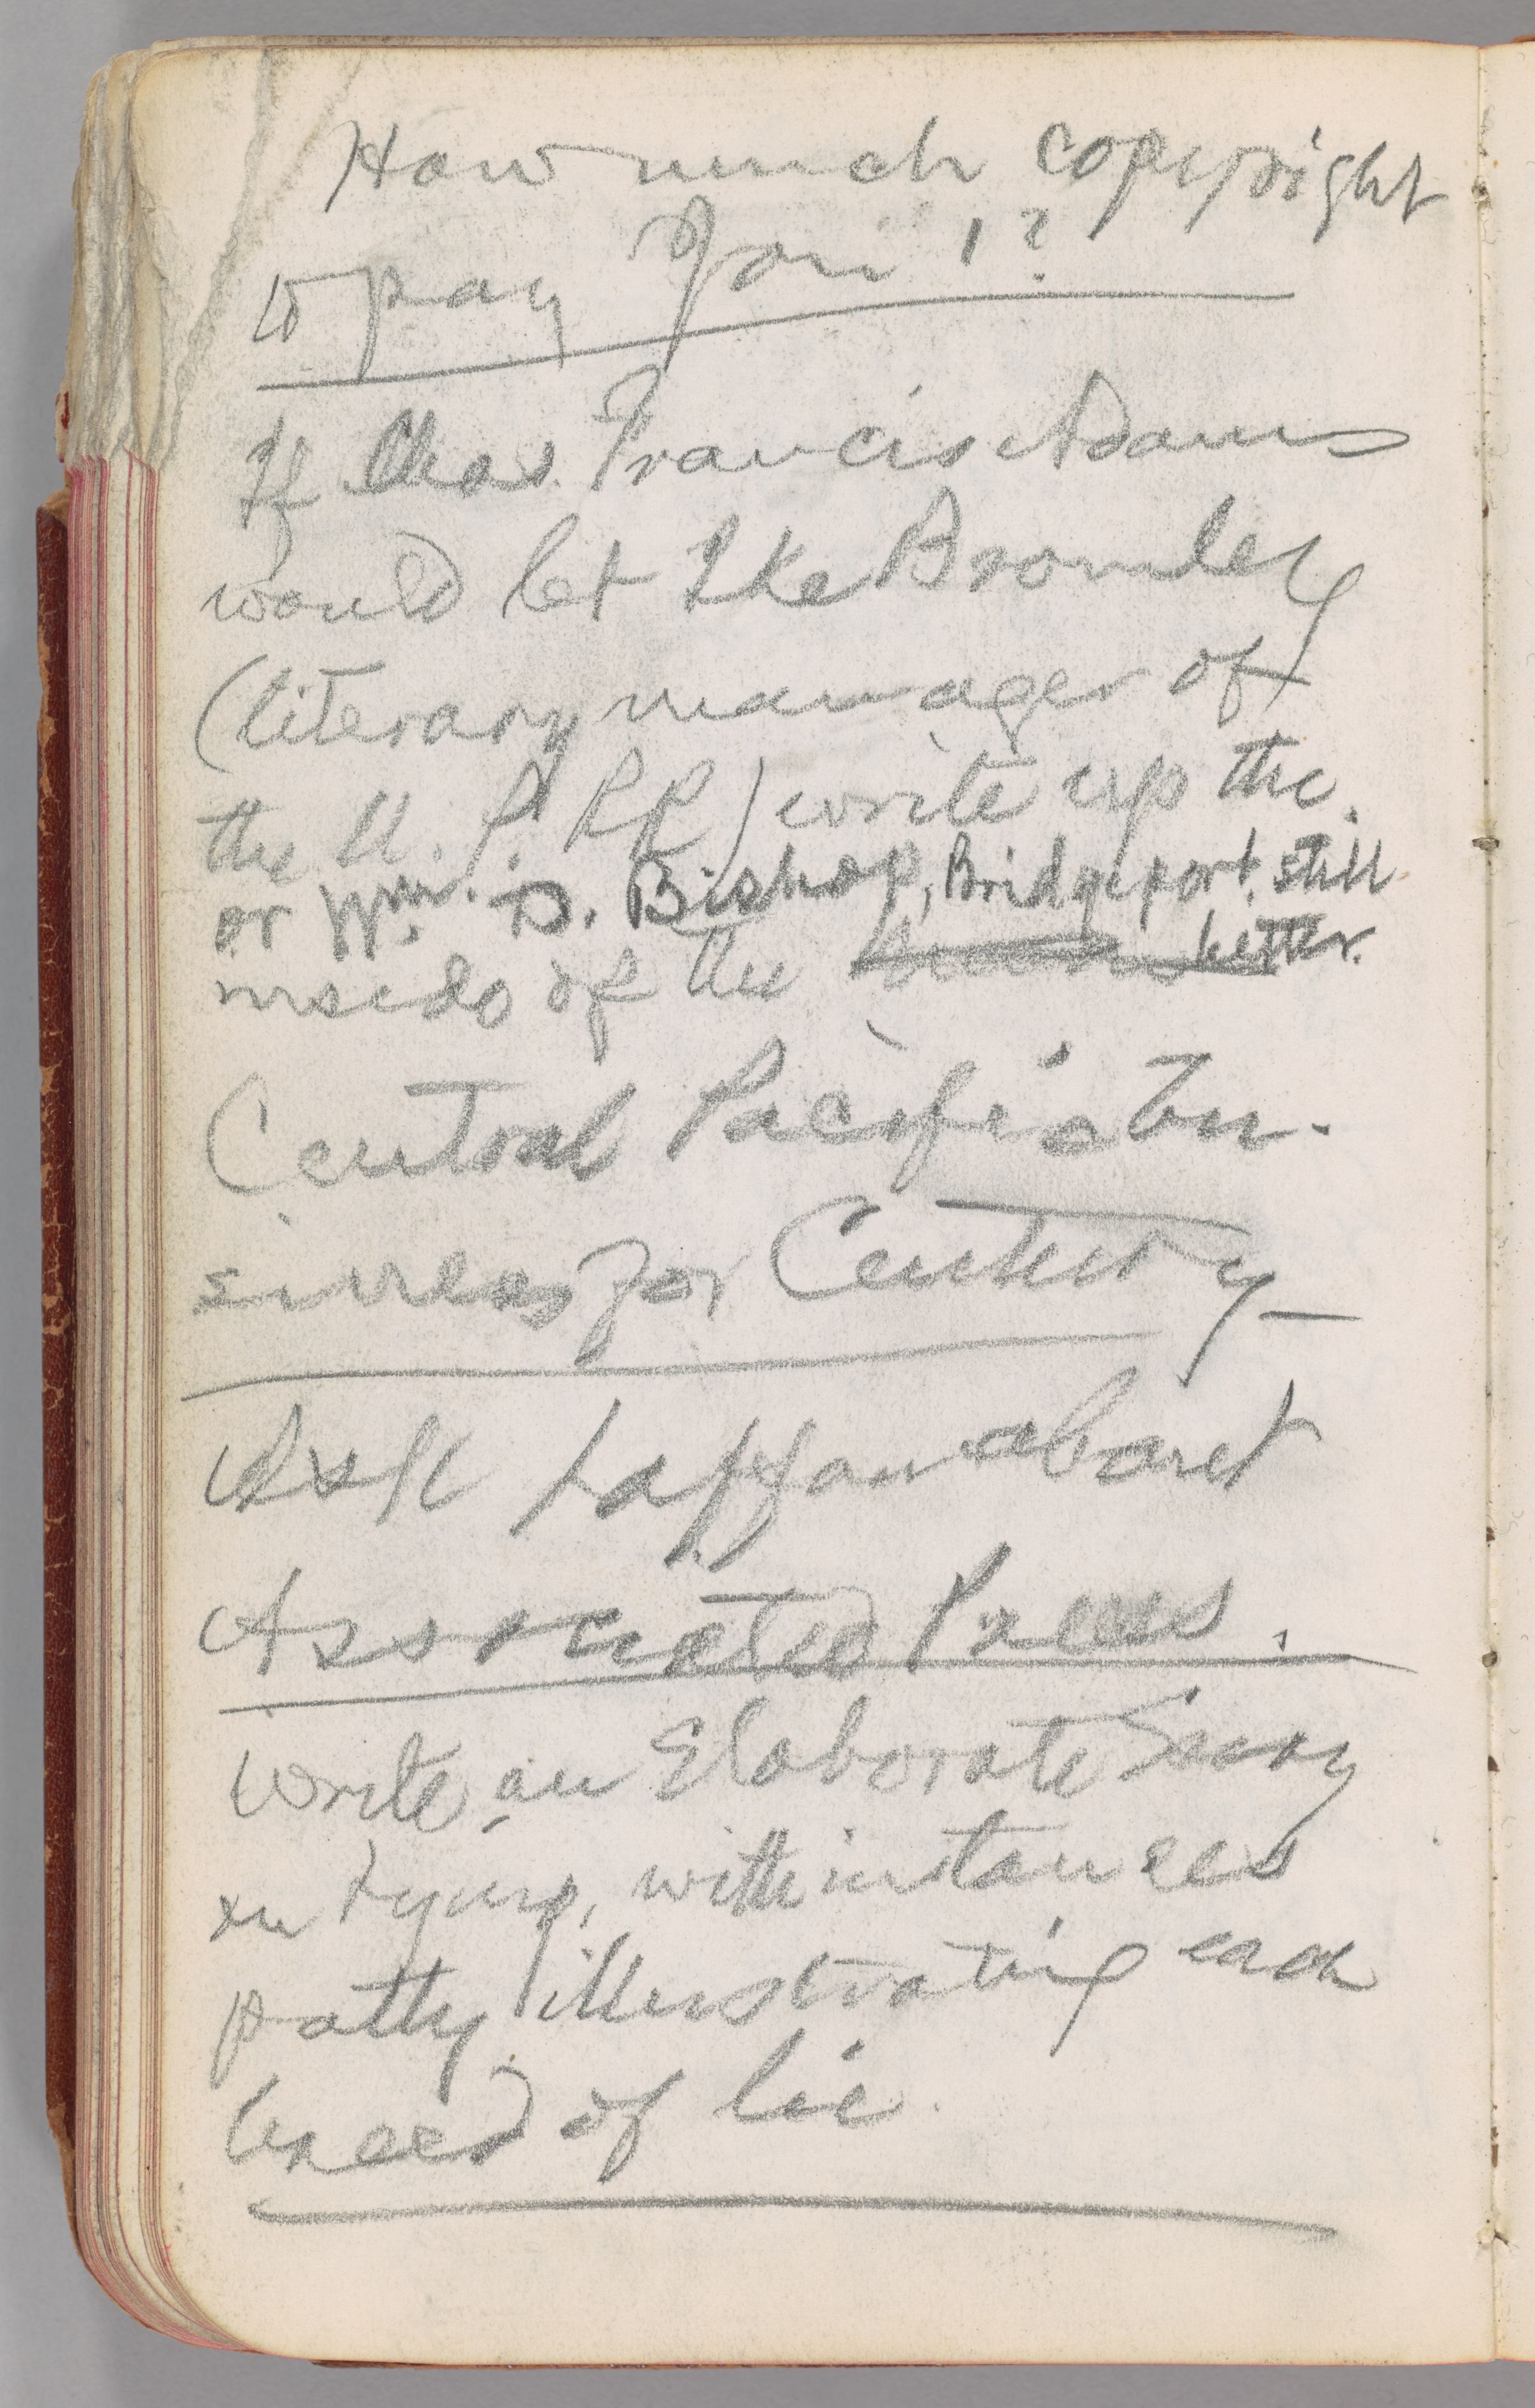 How much copyright
to pay you?
If Chas. Francis Adams
would let Ike Bromley
(literary manager of
the U. P. RR) write up the
or Wm. D. Bishop, Bridgeport, still
better.
inside of the
Central Pacific bu-
siness for Century—
Ask Laffan about
Associated Press.
Write an Elaborate Essay
on Lying, with instances
patly illustrating each
breed of lie.